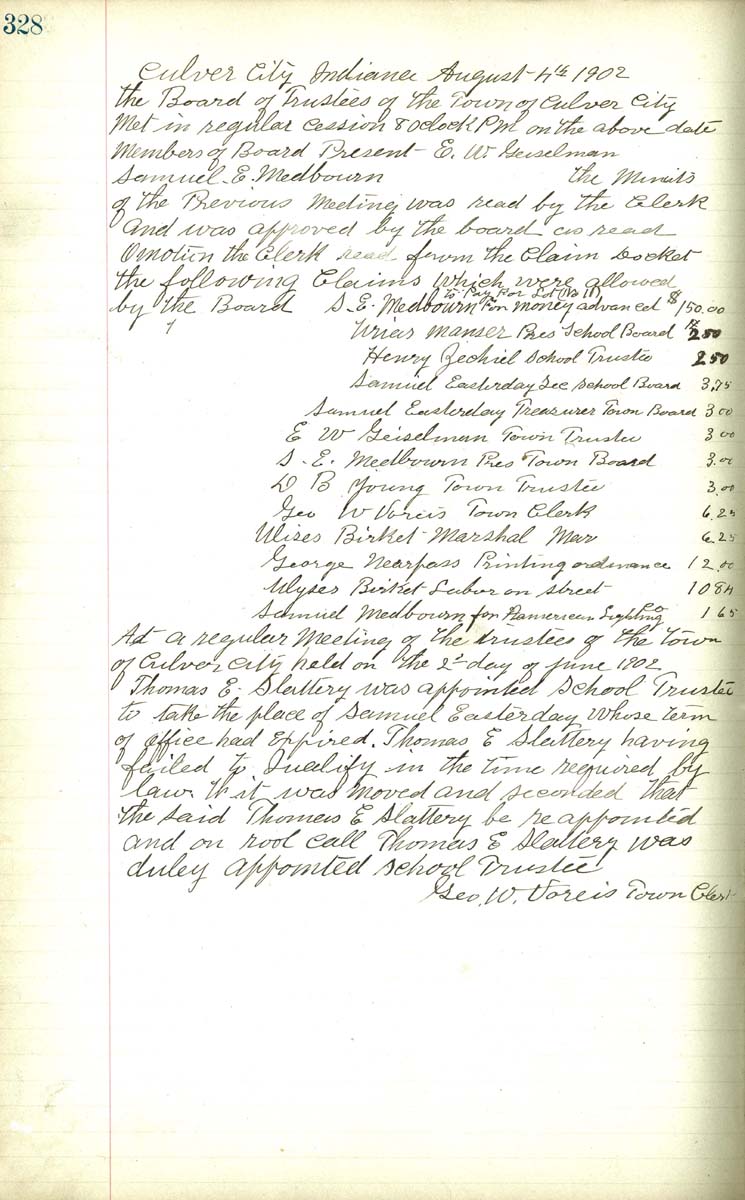 328
Culver City Indiana August 4th 1902
the Board of Trustees of the Town of Culver City
Met in regular cession 8 oclock PM on the above date
Members of Board Present E. W. Geiselman
Samuel E. Medbourn the Minuits
of the Previous Meeting was read by the Clerk
And was approved by the board as read
Omotion the Clerk read from the Claim Docket
the following Claims Which were allowed
to Pay For Lot (No 11)
by the Board S. E. Medbourn For money advanced $150.00
Urias Manser Pres School Board 2 50
Henry Zechiel School Trustee 2 50
Samuel Easterday Sec School Board 3.75
Samuel Easterday Treasurer Town Board 3 00
E W Geiselman Town Trustee 3 00
S. E. Medbourn Pres Town Board 3.00
D B Young Town Trustee 3.00
Geo W Voreis Town Clerk 6.25
Ulises Birket Marshal Mar 6.25
George Nearpass Printing ordinance 12.00
Ulyses Birket Labor on street 10 84
Samuel Medbourn for Lighting Co 1 65
At a regular Meeting of the trustees of the Town
of Culver City held on the 2d day of June 1902
Thomas E. Slattery was appointed School Trustee
to take the place of Samuel Easterday Whose term
of office had Expired. Thomas E Slattery having
failed to Qualify in the time required by
law. it was moved and seconded that
the said Thomas E Slattery be reappointed
and on rool Call Thomas E Slattery was
duley appointed School Trustee
Geo. W. Voreis Town Clerk